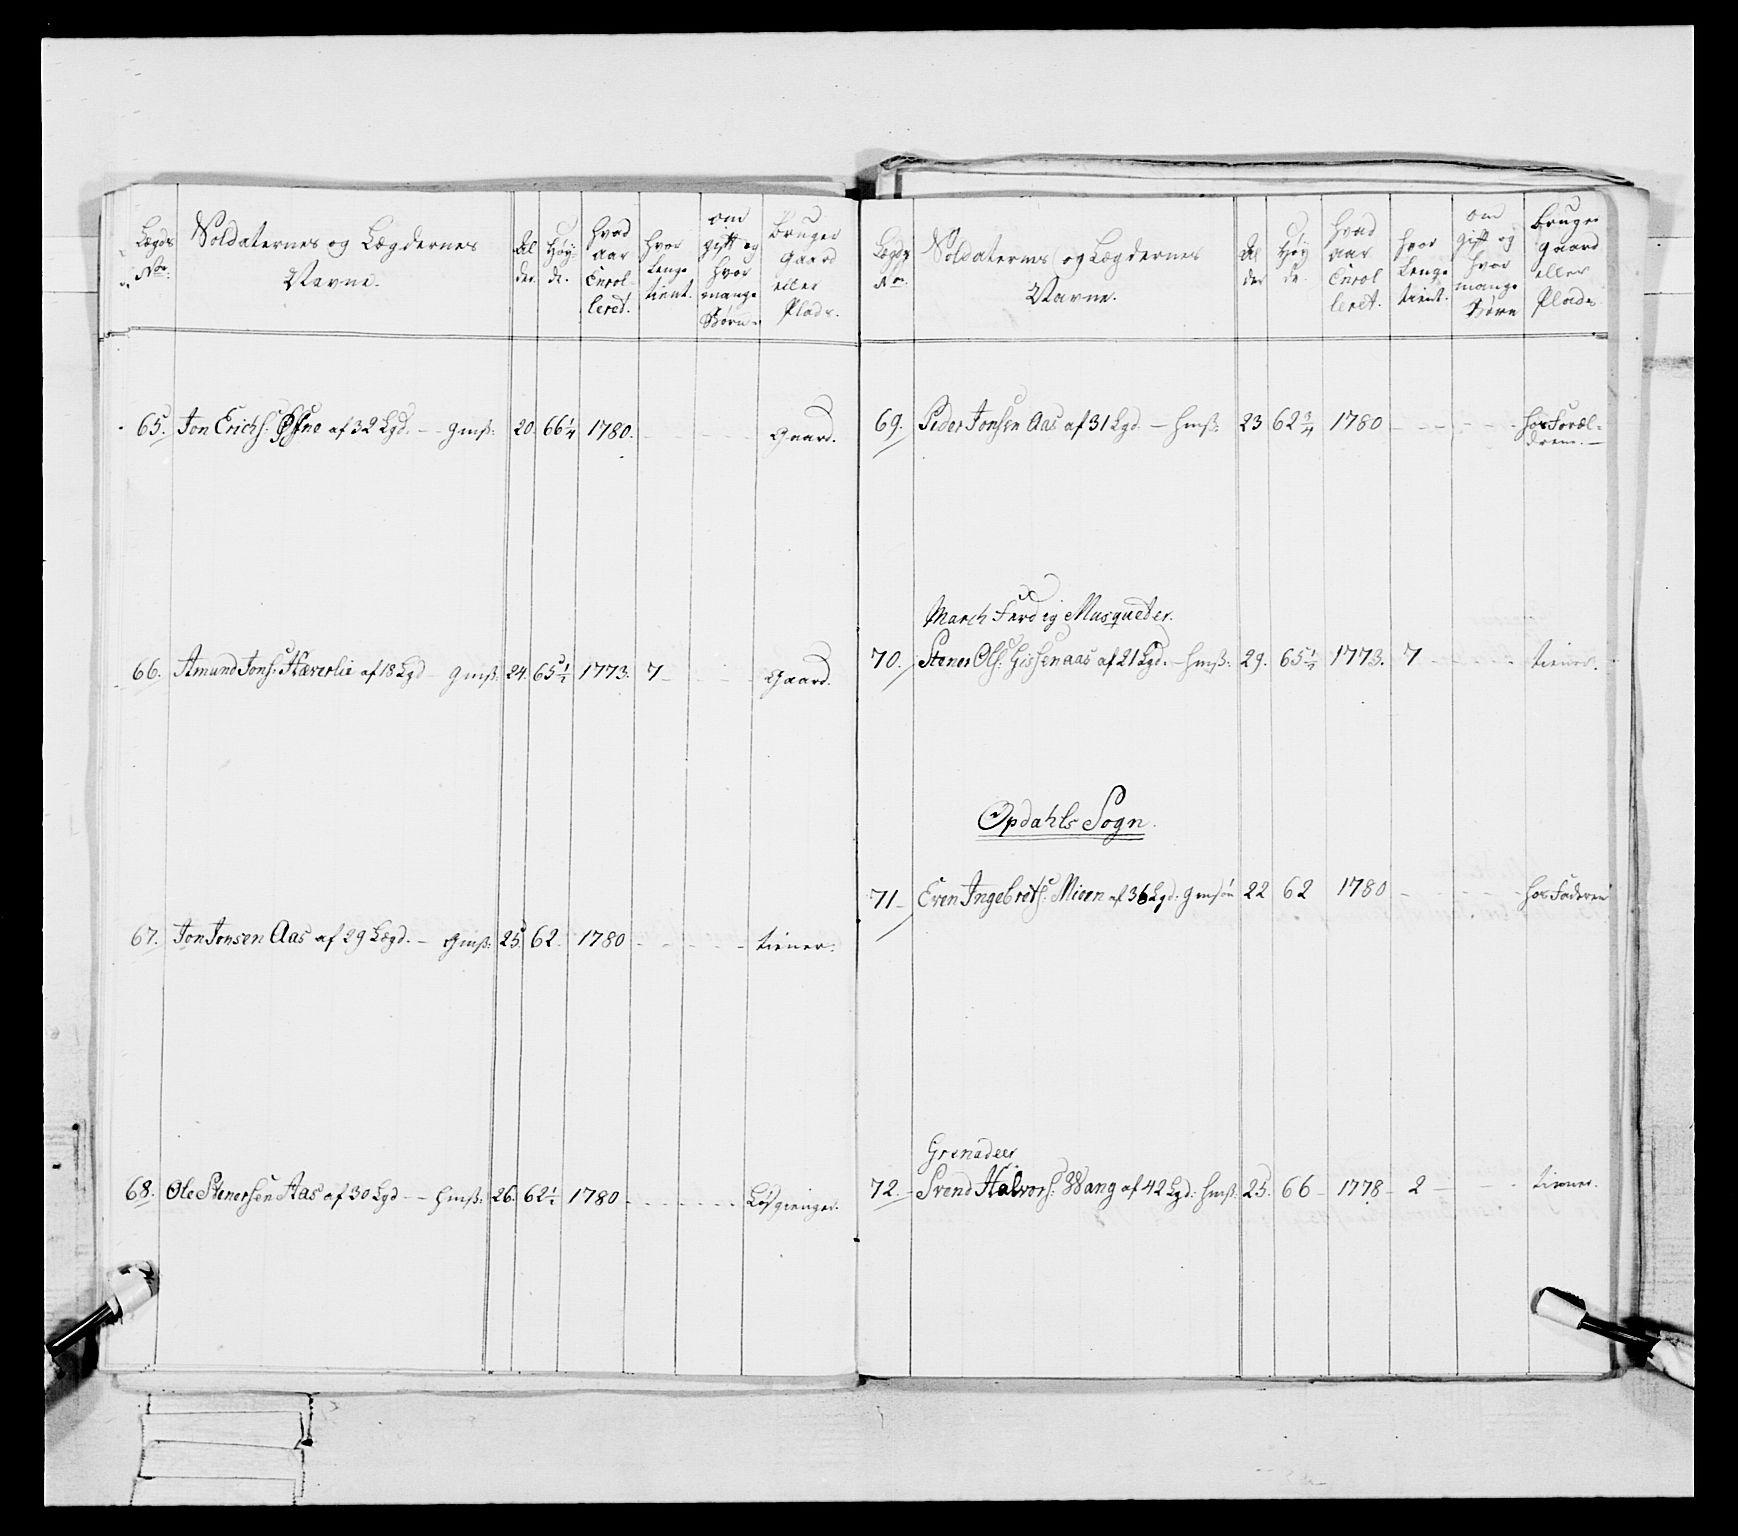 Lægds No:
Soldaternes og Lægdernes Navne.
Al der.
Høy de.
hvad aar Enrol leret.
hvor Lenge tient.
om gift og hvor mange Børn
Bruger Gaard eller Plads.
65. Jon Erichs: af 32 Lgd. — Gmß: 20. 66 1/4 1780. Gaard.
66. Amund Jons: Hæverlie af 18 Lgd — Gmß. 24. 65 1/2 1773. 7 Gaard.
67. Jon Jonsen Aas af 29 Lægd. — Gmß. 25. 62. 1780 tiener.
68. Ole Stenersen Aas af 30 Lgd — hmß: 26. 62 1/2 1780 Løsgienger.
Lægds No.
Soldaternes og Lægdernes Navne.
Al der
Høy de.
hvad aar Enrol leret.
hvor Lenge tient.
om gift og hvor mange Børn
Bruger Gaard eller Plads
69. Peder Jonsen Aas af 31 Lgd — hmß: 23 62 3/4 1780 hos Foræl=
drene. —
March Færdig Musqueter.
70. Stener Ols: af 21 Lgd. — hmß: 29. 65 1/2 1773. 7 tiener.
Opdahls Sogn.
71 Even Ingebrets: Mioen af 36 Lgd. Gmsøn 22 62 1780 hos Faderen
Grenadeer
72. Svend Halvors: Wang af 42 Lgd. hmß: 25. 66 1778 2 tiener.